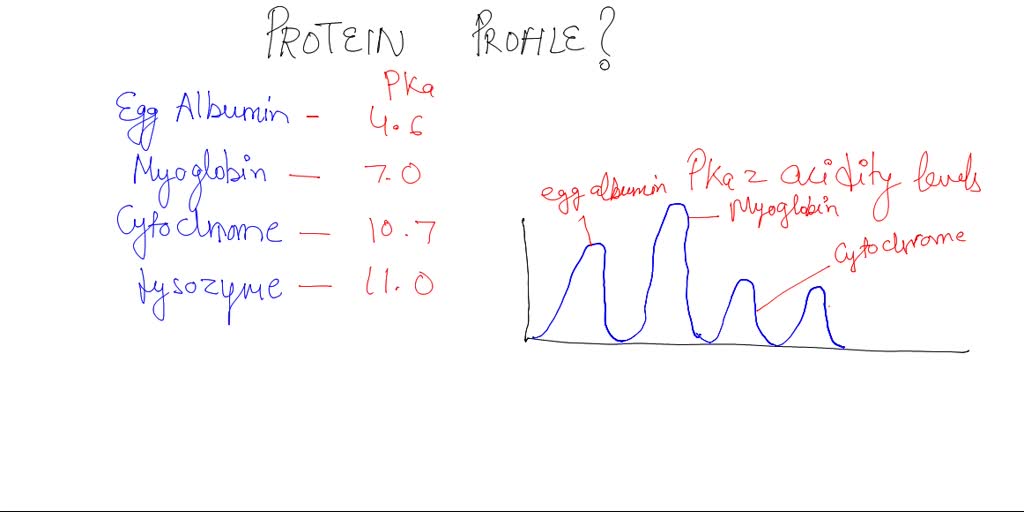 PROTEIN PROFILE?
PKa
Egg Albumin - 4.6
Myoglobin — 7.0
Cytochrome — 10.7
Lysozyme — 11.0
PKa = acidity levels
egg albumin
Myoglobin
Cytochrome